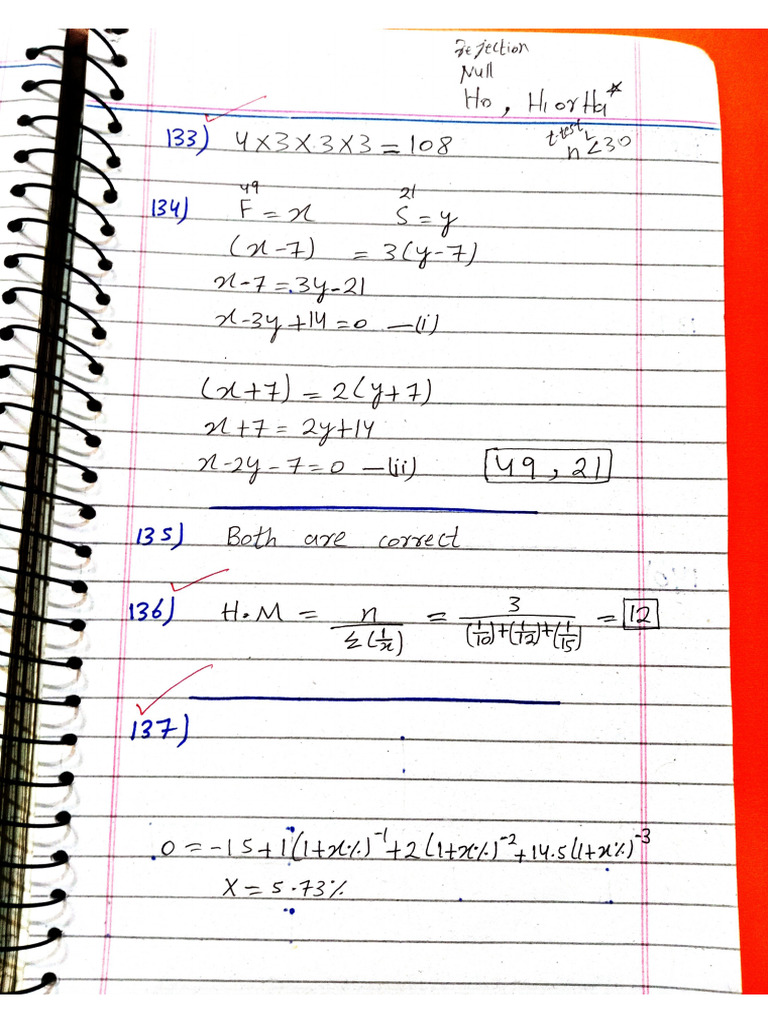 Rejection
Null
H0 , H1 or Ha*
t-test n<30
133) 4×3×3×3=108
134) F=x S=y
49 21
(x-7) = 3(y-7)
x-7=3y-21
x-3y+14=0 —(i)
(x+7) = 2(y+7)
x+7 = 2y+14
x-2y-7=0 —(ii) 49, 21
135) Both are correct
136) H.M = n/Σ(1/x) = 3/((1/10)+(1/12)+(1/15)) = 12
137)
0=-15+1(1+x%)^-1+2(1+x%)^-2+14.5(1+x%)^-3
X=5.73%